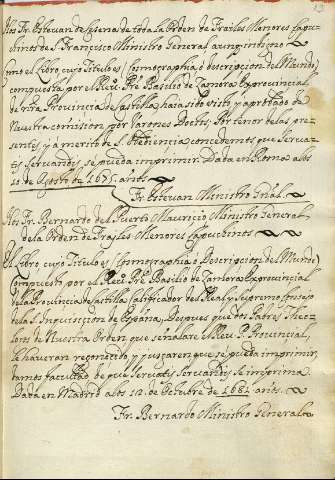 Nos Fr. Estevan de Cesena de toda la Orden de Frailes Menores Capu-
chinos de S. Francisco Ministro General, aunq indigno
Como el Libro, cujo Titulo es / Cosmographia o descripcion del Mundo /
compuesta por el Rev.º Pre Basilio de Zamora Exprovincial
de nra Provincia de Castilla, haia sido visto y aprobado de
Nuestra comision por Varones Doctos. Por tenor de las pre-
sentes, y a merito de S. Obediencia concedemos que Servatis
Servandis, se pueda imprimir. Dada en Roma a los
10 de Agosto de 1675. años
Fr. Estevan Ministro Gñal.
Nos Fr. Bernardo del Puerto Mauricio Ministro General
de la Orden de Frailes Menores Capuchinos
El Libro, cujo Titulo es / Cosmographia o Descripcion del Mundo /
Compuesto, por el Rev.º Pre Basilio de Zamora Exprovincial
de la Provincia de Castilla Calificador del Real y Supremo Consejo
de la S. Inquisicion de España, Despues que dos Padres Theo-
logos de Nuestra Orden que señalare el Rev. P. Provincial,
le haveran reconocido y juzgaren que se pueda imprimir,
damos facultad de que Servatis Servandis se imprima.
Dada en Madrid a los 12 de Octubre de 1681 años.
Fr. Bernardo Ministro General